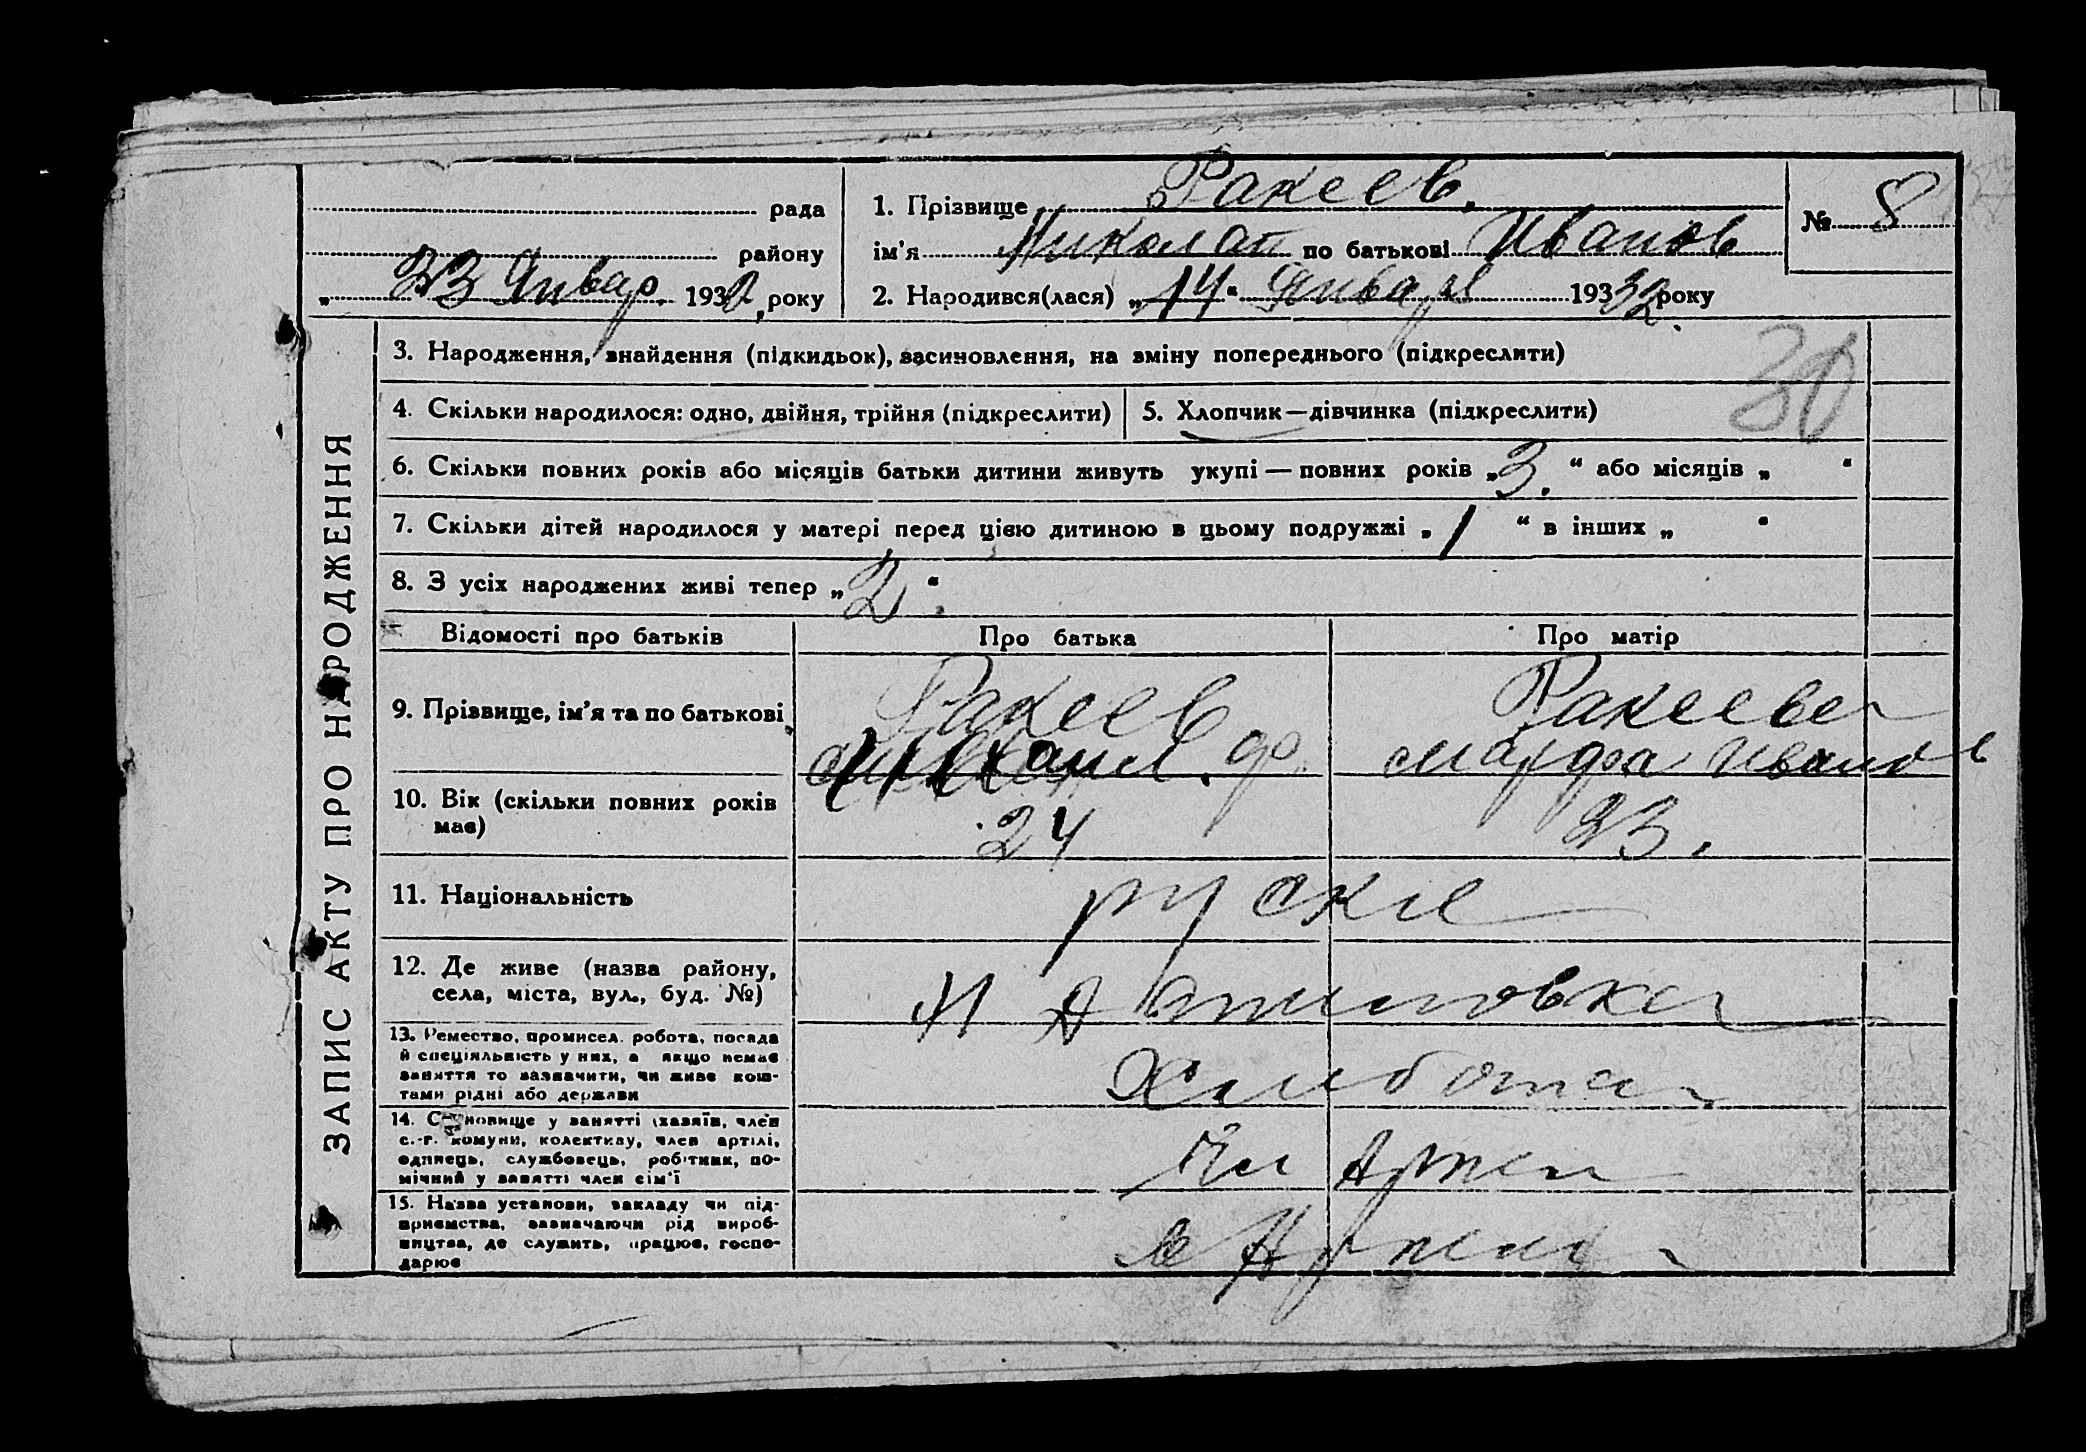 рада
району
„ 23 Январ. 1932, року
1. Прізвище Ракеев.
ім'я Николай по батькові Иванов
2. Народився(лася) „14“ Января 1932 року
№ 8
30
ЗАПИС АКТУ ПРО НАРОДЖЕННЯ
3. Народження, знайдення (підкидьок), засиновлення, на зміну попереднього (підкреслити)
4. Скільки народилося: одно, двійня, трійня (підкреслити)
5. Хлопчик—дівчинка (підкреслити)
6. Скільки повних років або місяців батьки дитини живуть укупі — повних років „3.“ або місяців „ “
7. Скільки дітей народилося у матері перед цією дитиною в цьому подружжі „1 “ в інших „ “
8. З усіх народжених живі тепер „2“.
Відомості про батьків
Про батька
Про матір
9. Прізвище, ім'я та по батькові
Ракеев
ф.
Ракеева
Марфа Иванов
10. Вік (скільки повних років
має)
24
23.
11. Національність
руские
12. Де живе (назва району,
села, міста, вул., буд. №)
13. Ремество, промисел, робота, посада
й спеціяльність у них, а якщо немає
заняття то зазначити, чи живе кош-
тами рідні або держави
14. Становище у занятті (хазяїн, член
с.-г. комуни, колективу, член артілі,
одинець, службовець, робітник, по-
мічний у занятті член сім'ї
Чл Артел
15. Назва установи, закладу чи під-
приємства, зазначаючи рід вироб-
ництва, де служить, працює, госпо-
дарює